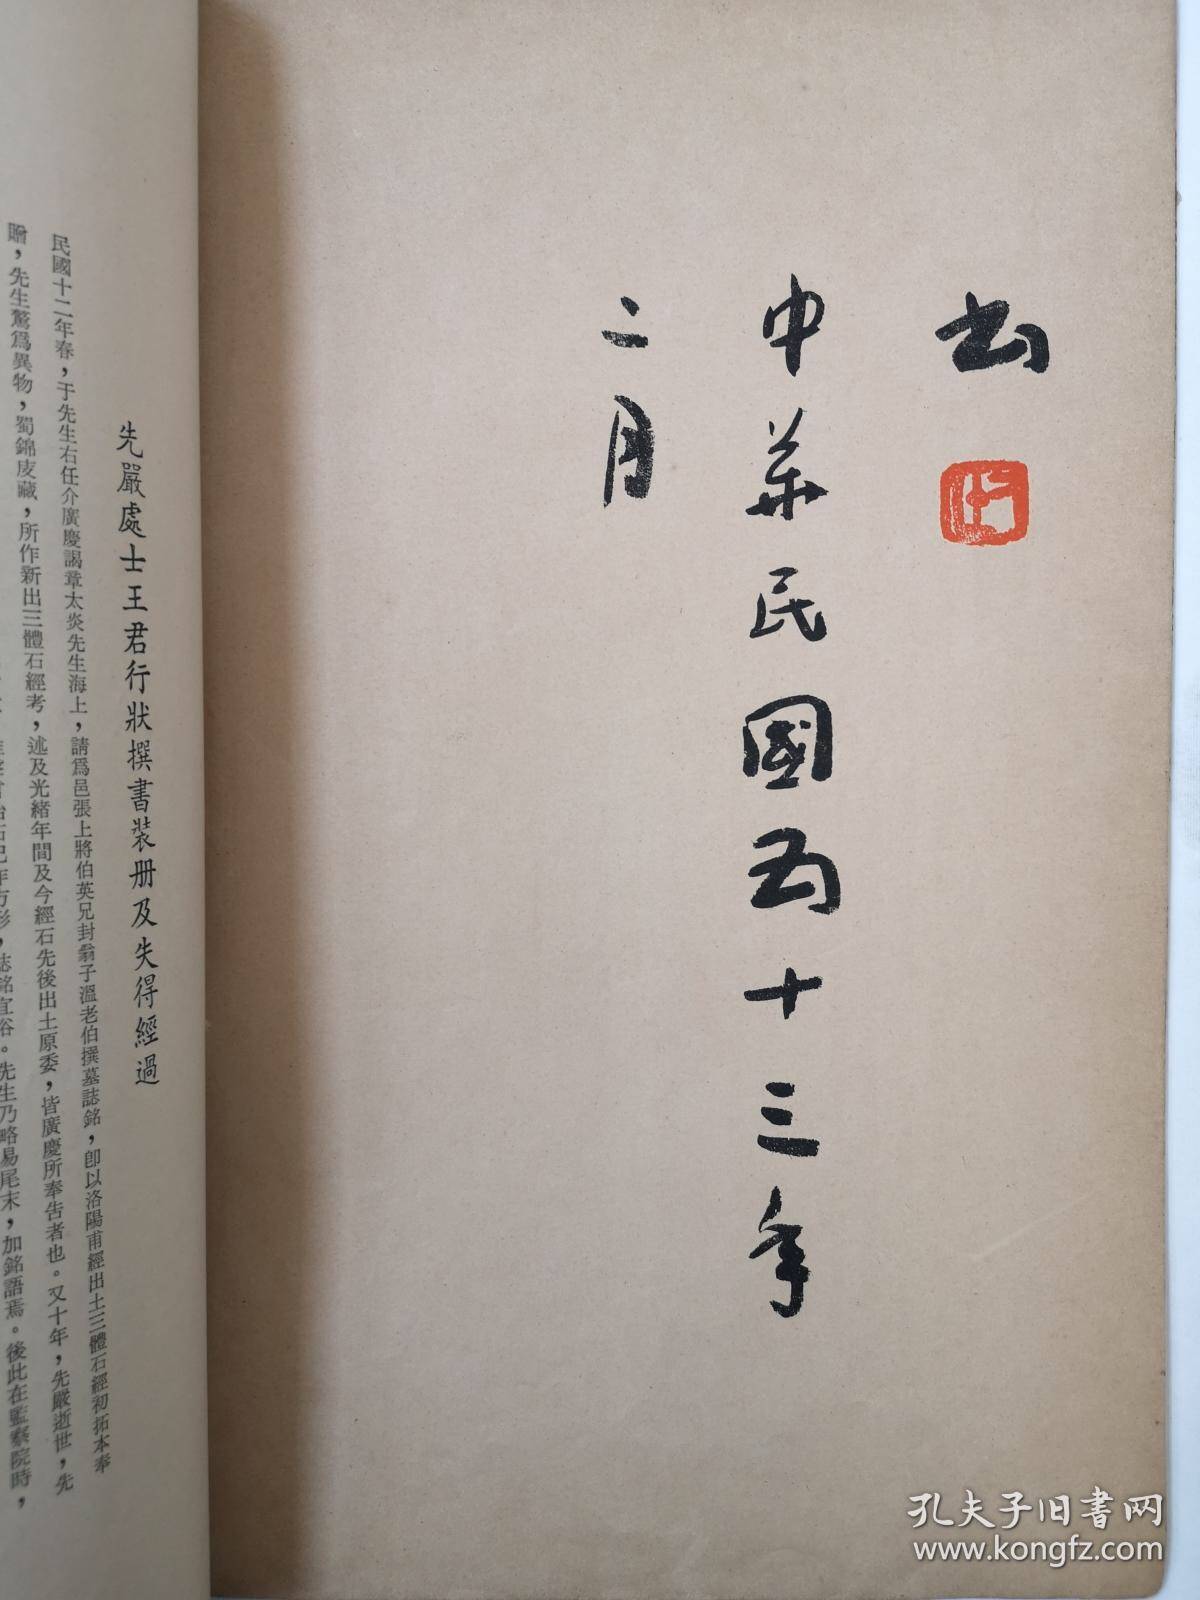 书
中華民國五十三年
二月
先嚴處士王君行狀撰書裝册及失得經過
民國十二年春，于先生右任介廣慶謁章太炎先生海上，請爲邑張上將伯英兄封翁子溫老伯撰墓誌銘，卽以洛陽甫經出土三體石經初拓本奉
贈，先生驚爲異物，蜀錦庋藏，所作新出三體石經考，述及光緒年間及今經石先後出土原委，皆廣慶所奉告者也。又十年，先嚴逝世，先
方形，誌銘宜俗。先生乃略易尾末，加銘語焉。後此在監察院時，
孔夫子旧书网
www.kongfz.com